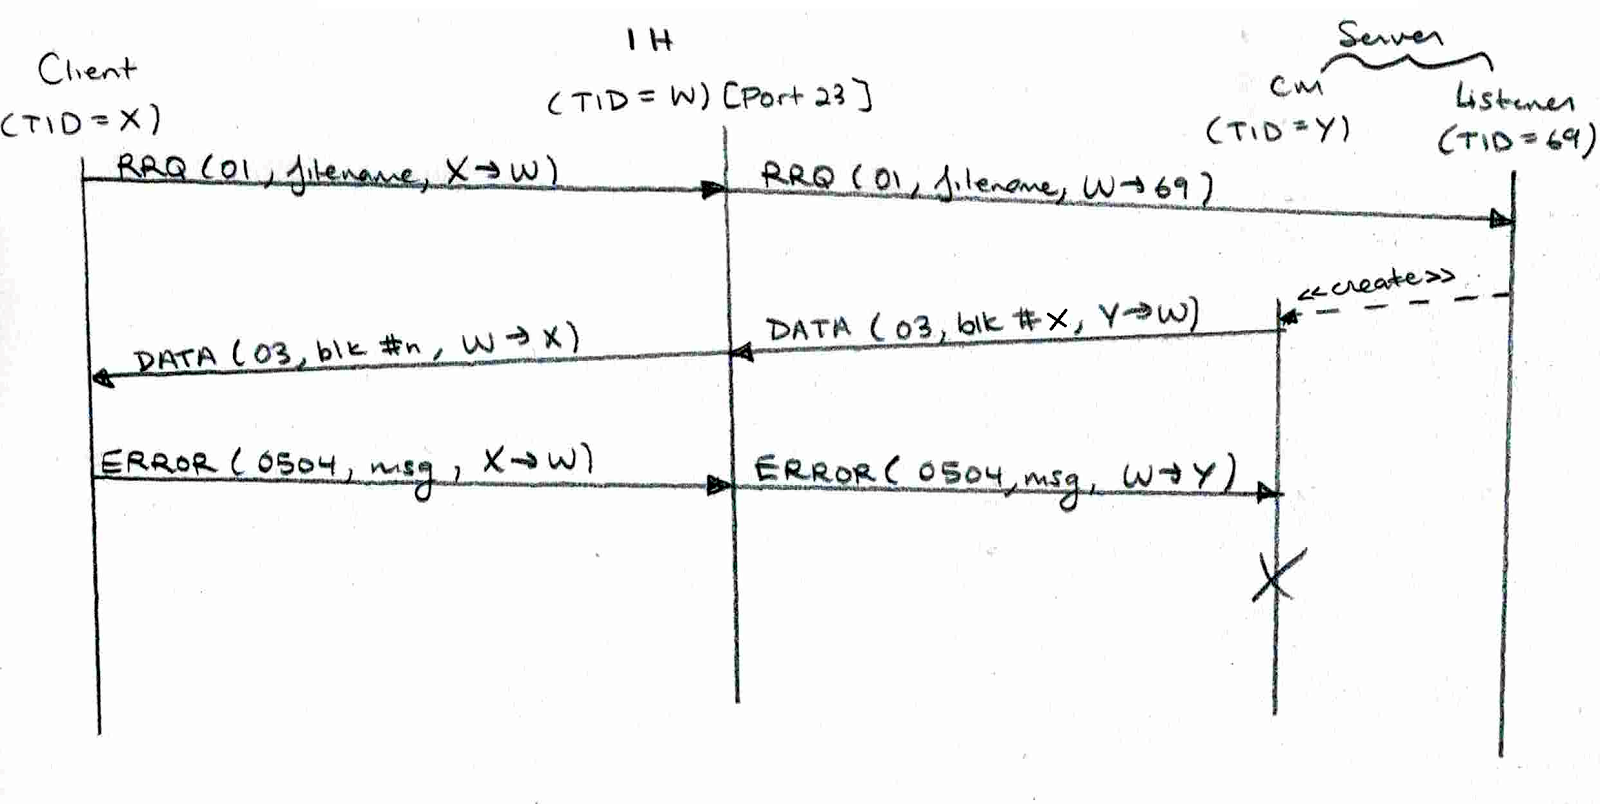 IH
Server
Client
(TID = X)
(TID = W) [Port 23]
CM
(TID = Y)
Listener
(TID = 69)
RRQ (01, filename, X → W)
RRQ (01, filename, W → 69)
<<create>>
DATA (03, blk #X, Y → W)
DATA (03, blk #n, W → X)
ERROR (0504, msg, X → W)
ERROR (0504, msg, W → Y)
X